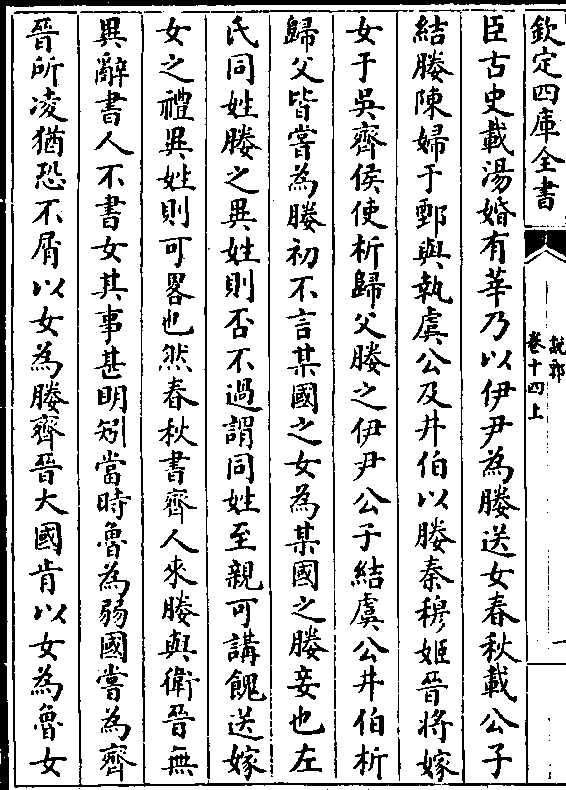 欽定四庫全書
說郛
卷十四上
臣古史載湯婚有莘乃以伊尹為媵送女春秋載公子
結媵陳婦于鄄與執虞公及井伯以媵秦穆姬晉將嫁
女于吳齊侯使析歸父媵之伊尹公子結虞公井伯析
歸父皆嘗為媵初不言某國之女為某國之媵妾也左
氏同姓媵之異姓則否不過謂同姓至親可講餽送嫁
女之禮異姓則可畧也然春秋書齊人來媵與衛晉無
異辭書人不書女其事甚明矧當時魯為弱國嘗為齊
晉所凌猶恐不屑以女為媵齊晉大國肯以女為魯女